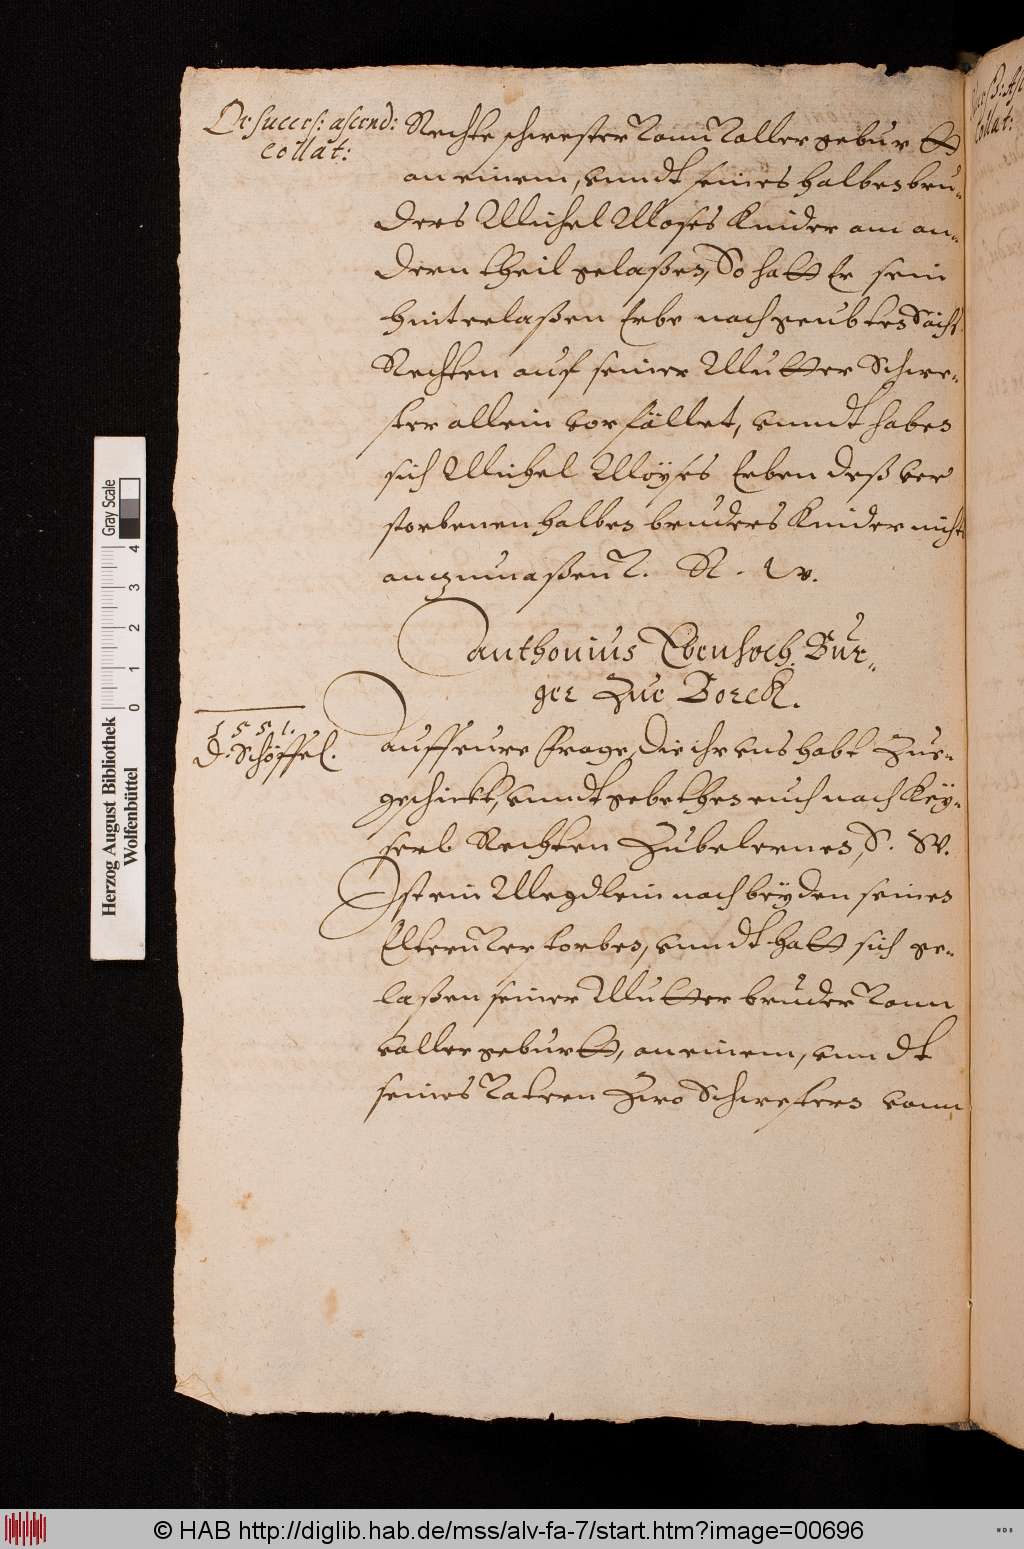 De success: ascend:
Collat:
Rechte schwester vonn voller geburtt
an einem, vnndt seines halben bru-
ders Michel Moses Kinder am an-
dern theil gelaßen, So hatt Er sein
hinterlaßen Erbe nach geubten Sächß
Rechten auf seiner Mutter Schwe-
ster allein vorfället, vnndt haben
sich Michel Möyses Erben deß ver
storbenen halben bruders Kinder nicht
anzumaßenn. V. R. W.
Anthonius Ebenhoch Bur-
ger Zue Borck.
1551.
D. Schöffel.
Auff eure Frage, die ihr vns habt Zue-
geschickt, vnndt gebethen euch nach Key-
serl Rechten Zubelernen, S. W.
Ist ein Megdlein nach beyden seinen
Elternn verstorben, vnndt hatt sich ge-
laßen seiner Mutter bruder vonn
voller geburtt, an einem, vnndt
seines Vatern Zwo Schwestern vonn
Collat:
Gray Scale
0 1 2 3 4
Herzog August Bibliothek
Wolfenbüttel
© HAB http://diglib.hab.de/mss/alv-fa-7/start.htm?image=00696